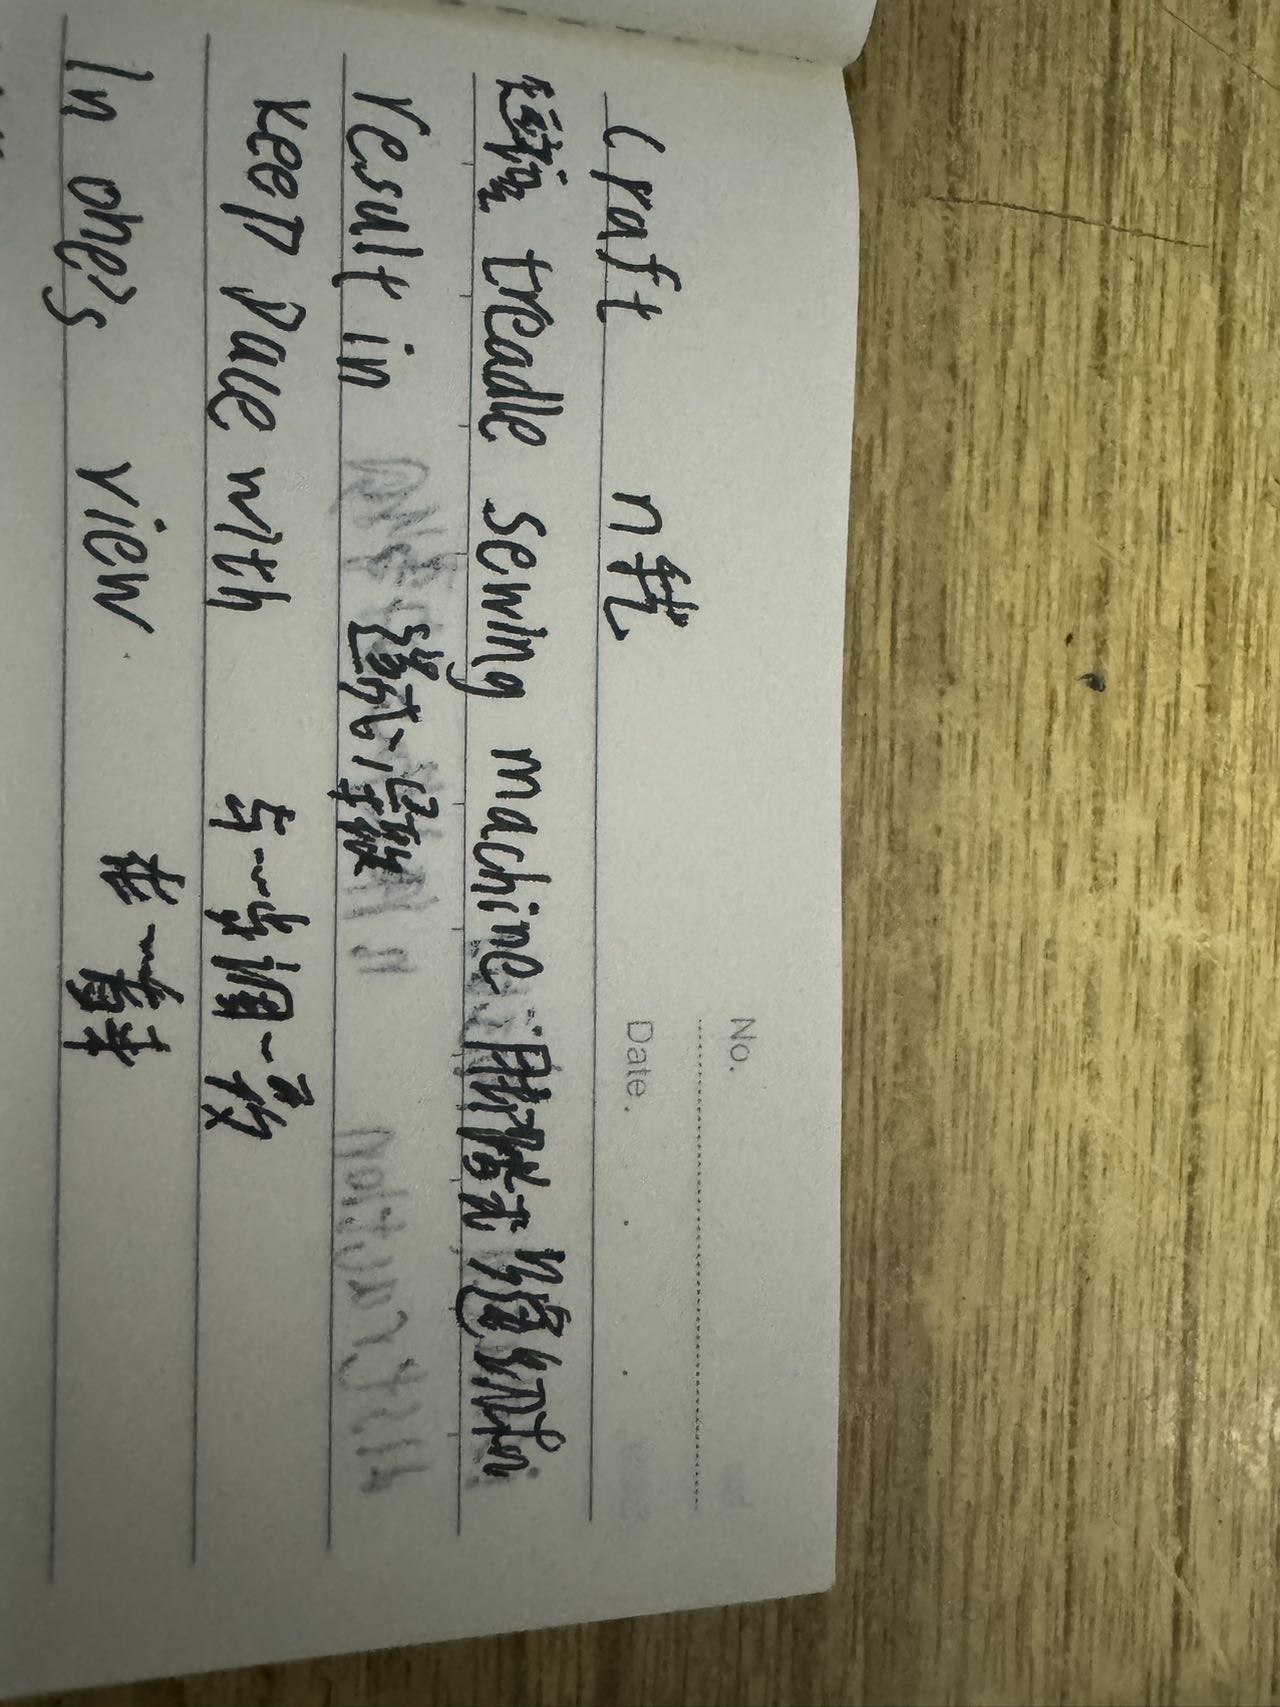 No.
Date.
craft n 艺
treadle sewing machine 脚踏式缝纫机
result in 造成、导致
keep pace with 与…步调一致
In one's view 在…看来